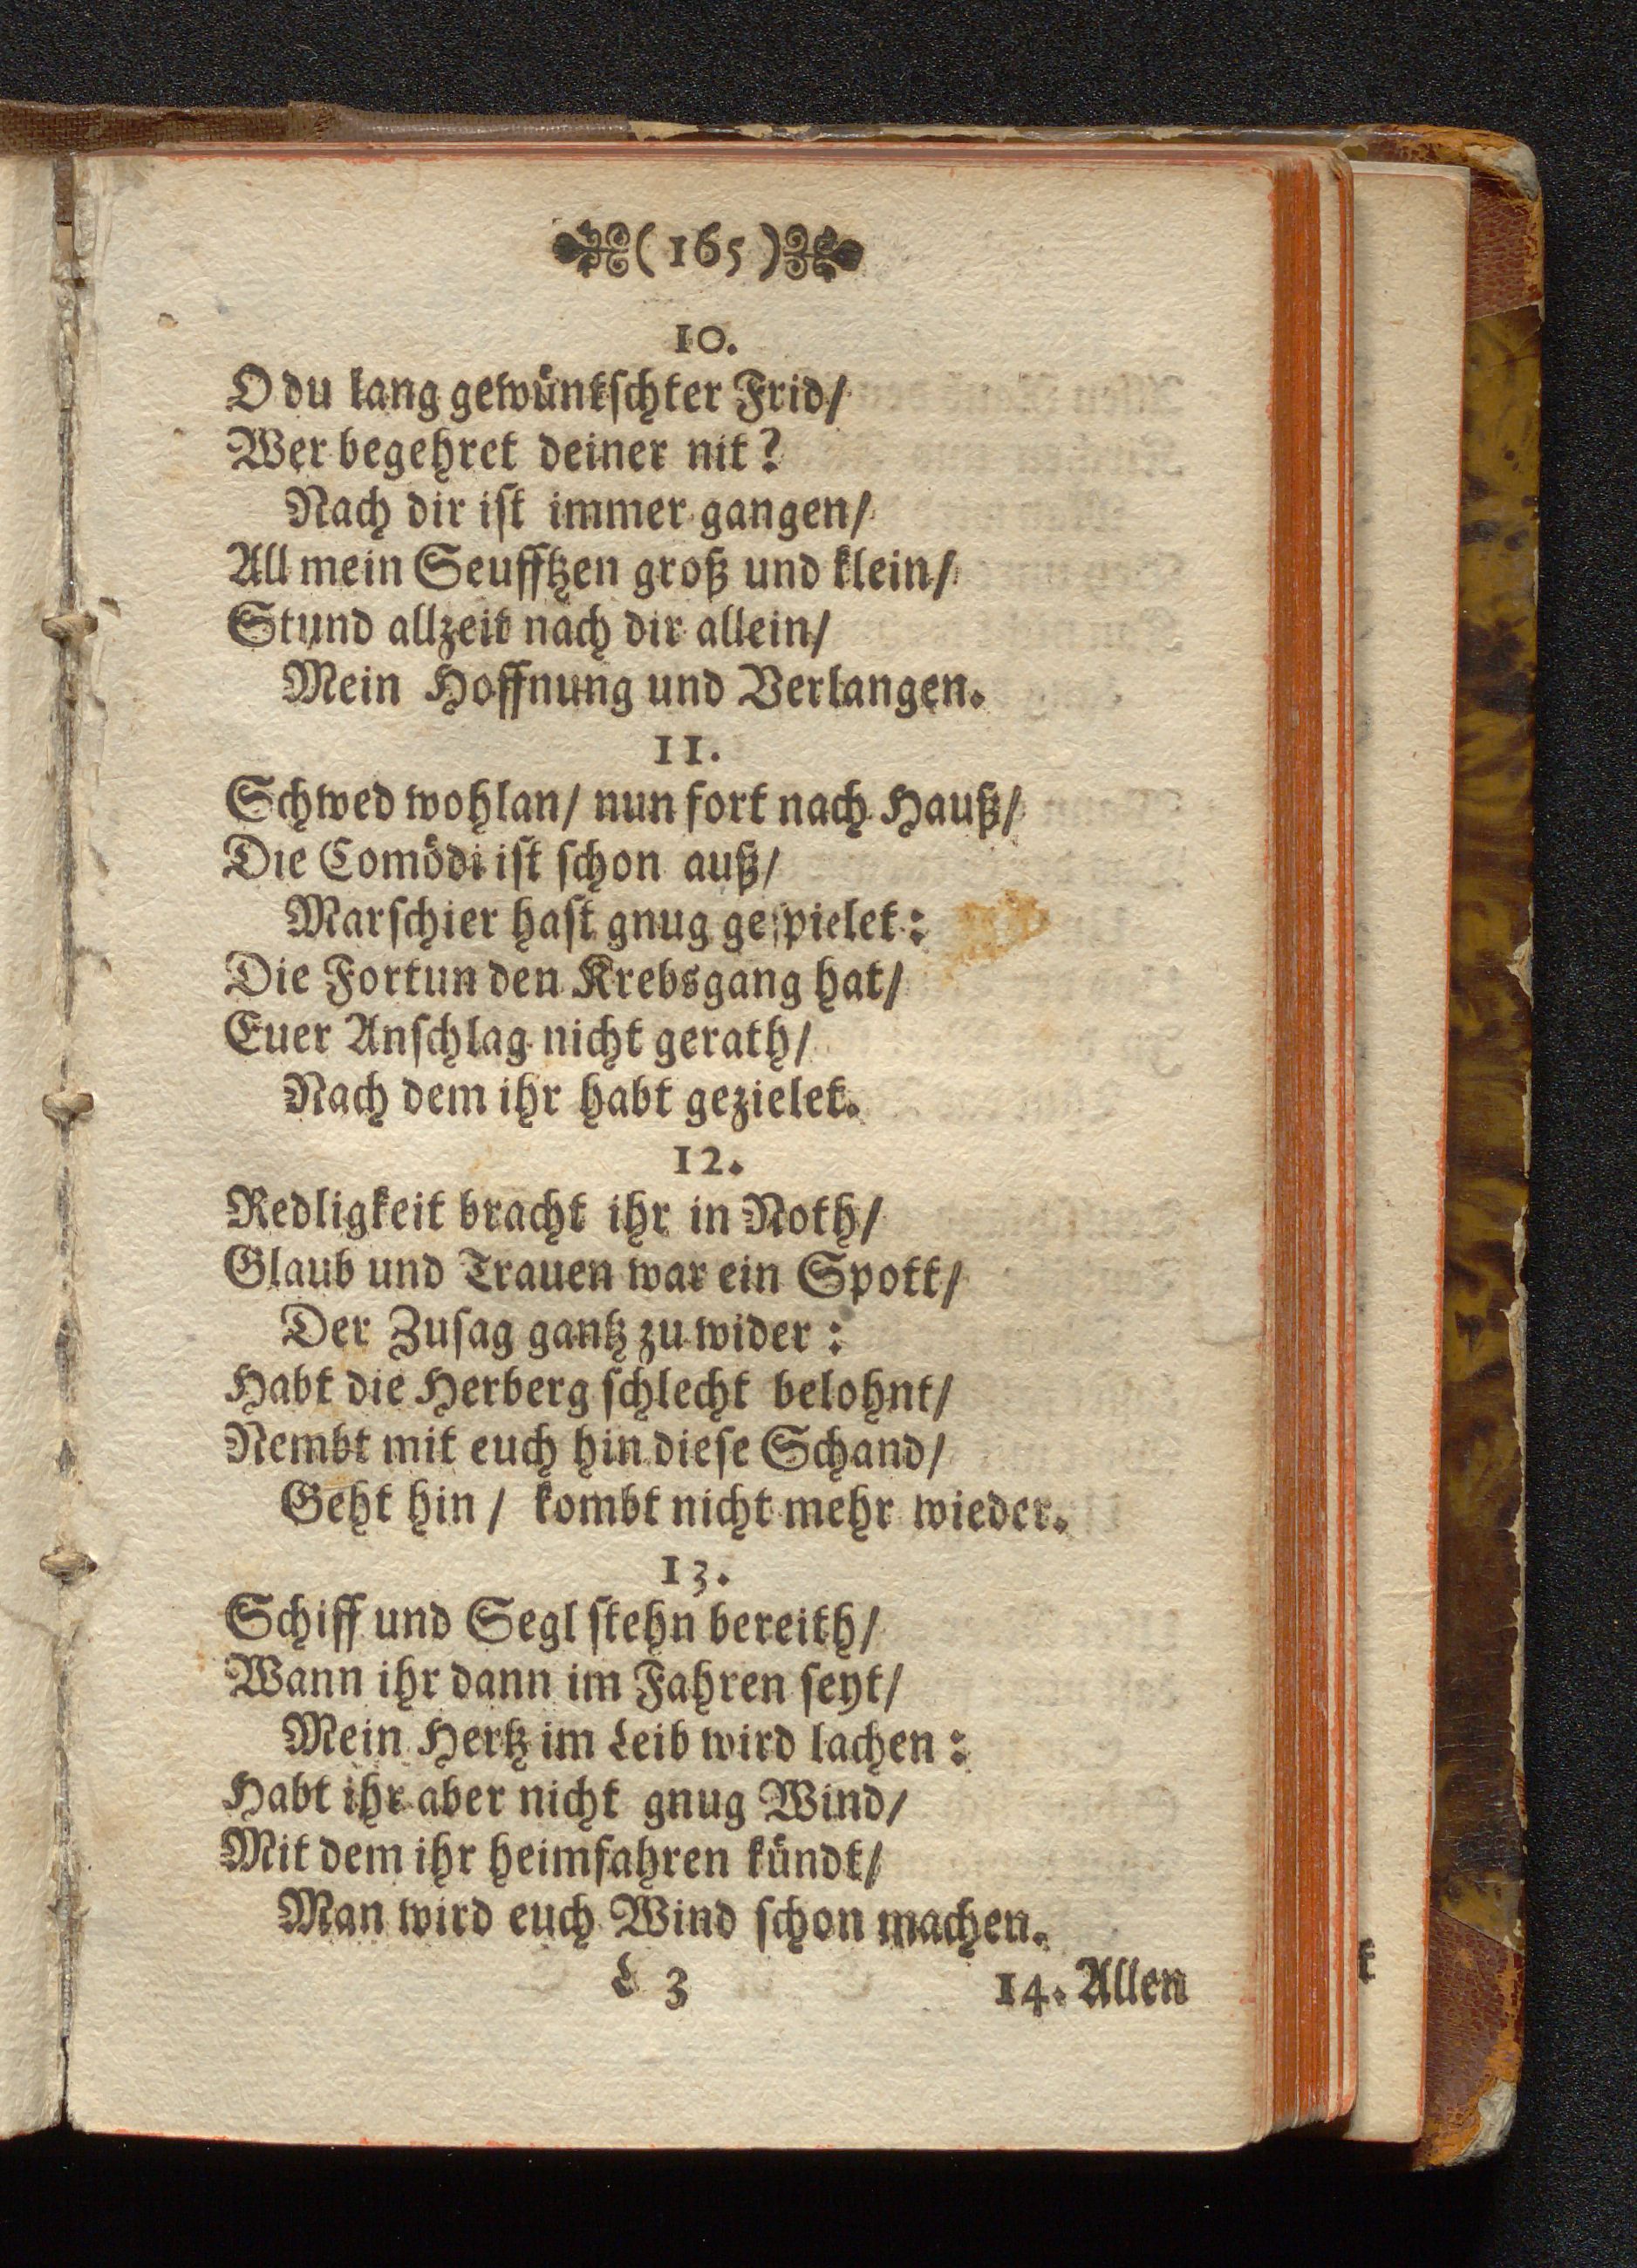 (165)
10.
O du lang gewünkſchter Frid/
Wer begehret deiner nit?
Nach dir iſt immer gangen/
All mein Seufftzen groß und klein/
Stund allzeit nach dir allein/
Mein Hoffnung und Verlangen.
11.
Schwed wohlan/ nun fort nach Hauß/
Die Comödi iſt ſchon auß/
Marſchier haſt gnug geſpielet:
Die Fortun den Krebsgang hat/
Euer Anſchlag nicht gerath/
Nach dem ihr habt gezielet.
12.
Redligkeit bracht ihr in Noth/
Glaub und Trauen war ein Spott/
Der Zuſag gantz zu wider:
Habt die Herberg ſchlecht belohnt/
Nembt mit euch hin dieſe Schand/
Geht hin/ kombt nicht mehr wieder.
13.
Schiff und Segl ſtehn bereith/
Wann ihr dann im Fahren ſeyt/
Mein Hertz im Leib wird lachen:
Habt ihr aber nicht gnug Wind/
Mit dem ihr heimfahren kündt/
Man wird euch Wind ſchon machen.
L 3 14. Allen